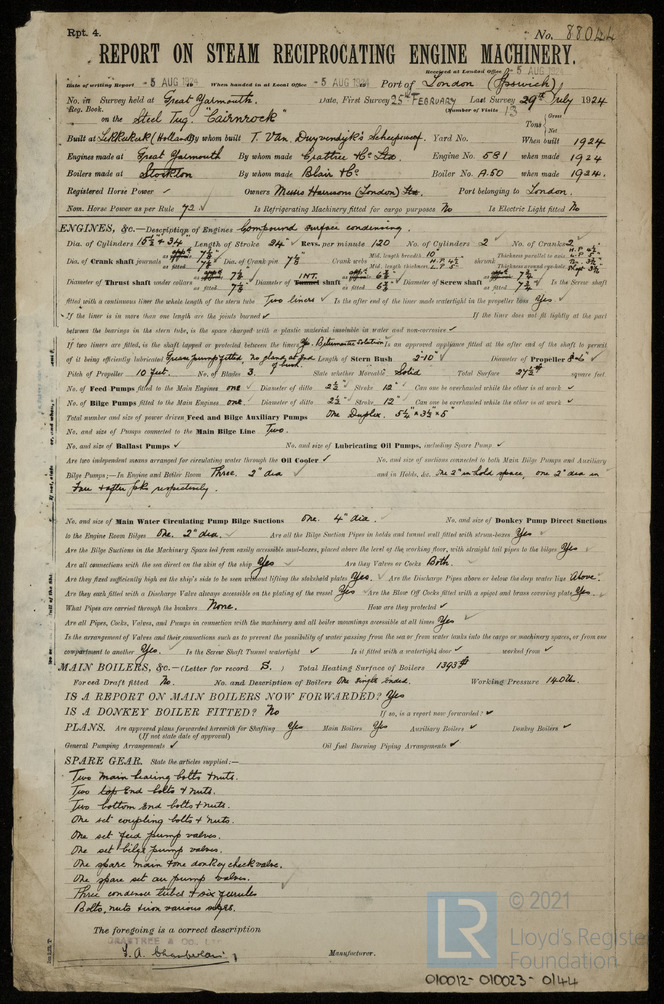 Rpt. 4.
No. 88044
REPORT ON STEAM RECIPROCATING ENGINE MACHINERY.
Received at London Office 5 AUG 1924
Date of writing Report 5 AUG 1924 When handed in at Local Office 5 AUG 1924 Port of London (Ipswich)
No. in Reg. Book. Survey held at Great Yarmouth. Date, First Survey 25th FEBRUARY Last Survey 29th July 1924
(Number of Visits 13
on the Steel Tug "Cairnrock" Tons Gross Net
Built at Lekkerkerk (Holland) By whom built T. Van Duyvendijk's Scheepswerf. Yard No. When built 1924
Engines made at Great Yarmouth By whom made Crabtree & Co. Ltd. Engine No. 581 when made 1924
Boilers made at Stockton By whom made Blair & Co Boiler No. A.50 when made 1924.
Registered Horse Power Owners Messrs Harrisons (London) Ltd. Port belonging to London.
Nom. Horse Power as per Rule 72 Is Refrigerating Machinery fitted for cargo purposes No Is Electric Light fitted No
ENGINES, &c.—Description of Engines Compound surface condensing.
Dia. of Cylinders 15½ & 34 Length of Stroke 24 Revs. per minute 120 No. of Cylinders 2 No. of Cranks 2
Dia. of Crank shaft journals as fitted 7⅞ Dia. of Crank pin 7⅞ Crank webs Mid. length breadth 10" Mid. length thickness shrunk Thickness parallel to axis Thickness around eye-hole
Diameter of Thrust shaft under collars as fitted 7⅞ Diameter of INT. shaft as fitted Diameter of Screw shaft as fitted Is the Screw shaft
fitted with a continuous liner the whole length of the stern tube Two liners Is the after end of the liner made watertight in the propeller boss Yes
If the liner is in more than one length are the joints burned If the liner does not fit tightly at the part
between the bearings in the stern tube, is the space charged with a plastic material insoluble in water and non-corrosive
If two liners are fitted, is the shaft lapped or protected between the liners Yes. Bitumastic Solution. Is an approved appliance fitted at the after end of the shaft to permit
of it being efficiently lubricated Grease pump fitted, no gland at aft end of bush. Length of Stern Bush 2'-10" Diameter of Propeller 8'-6"
Pitch of Propeller 10 feet. No. of Blades 3. State whether Moveable Solid Total Surface 27½ square feet.
No. of Feed Pumps fitted to the Main Engines one Diameter of ditto 2½" Stroke 12" Can one be overhauled while the other is at work
No. of Bilge Pumps fitted to the Main Engines one Diameter of ditto 2½" Stroke 12" Can one be overhauled while the other is at work
Total number and size of power driven Feed and Bilge Auxiliary Pumps One Duplex. 5¼" x 3½ x 5"
No. and size of Pumps connected to the Main Bilge Line Two.
No. and size of Ballast Pumps No. and size of Lubricating Oil Pumps, including Spare Pump
Are two independent means arranged for circulating water through the Oil Cooler No. and size of suctions connected to both Main Bilge Pumps and Auxiliary
Bilge Pumps;—In Engine and Boiler Room Three. 2" dia and in Holds, &c. One 2" in hold space, one 2" dia in
Fore & after peaks respectively.
No. and size of Main Water Circulating Pump Bilge Suctions One. 4" dia. No. and size of Donkey Pump Direct Suctions
to the Engine Room Bilges One. 2" dia. Are all the Bilge Suction Pipes in holds and tunnel well fitted with strum-boxes Yes
Are the Bilge Suctions in the Machinery Space led from easily accessible mud-boxes, placed above the level of the working floor, with straight tail pipes to the bilges Yes
Are all connections with the sea direct on the skin of the ship Yes Are they Valves or Cocks Both.
Are they fixed sufficiently high on the ship's side to be seen without lifting the stokehold plates Yes. Are the Discharge Pipes above or below the deep water line Above.
Are they each fitted with a Discharge Valve always accessible on the plating of the vessel Yes Are the Blow Off Cocks fitted with a spigot and brass covering plate Yes.
What Pipes are carried through the bunkers None. How are they protected
Are all Pipes, Cocks, Valves, and Pumps in connection with the machinery and all boiler mountings accessible at all times Yes
Is the arrangement of Valves and their connections such as to prevent the possibility of water passing from the sea or from water tanks into the cargo or machinery spaces, or from one
compartment to another Yes. Is the Screw Shaft Tunnel watertight Is it fitted with a watertight door worked from
MAIN BOILERS, &c.—(Letter for record S. ) Total Heating Surface of Boilers 1393
Forced Draft fitted No. No. and Description of Boilers One single ended. Working Pressure 140 lbs.
IS A REPORT ON MAIN BOILERS NOW FORWARDED? Yes
IS A DONKEY BOILER FITTED? No If so, is a report now forwarded?
PLANS. Are approved plans forwarded herewith for Shafting Yes Main Boilers Yes Auxiliary Boilers Donkey Boilers
(If not state date of approval)
General Pumping Arrangements Oil fuel Burning Piping Arrangements
SPARE GEAR. State the articles supplied:—
Two main bearing bolts & nuts.
Two top end bolts & nuts.
Two bottom end bolts & nuts.
One set coupling bolts & nuts.
One set feed pump valves.
One set bilge pump valves.
One spare main & one donkey check valve.
One spare set air pump valves.
Three condenser tubes & six ferrules
Bolts, nuts & iron various sizes.
The foregoing is a correct description
CRABTREE & CO. LTD
F. A. Chamberlain Manufacturer.
© 2021
LR
Lloyd's Register
Foundation
010012-010023-0144